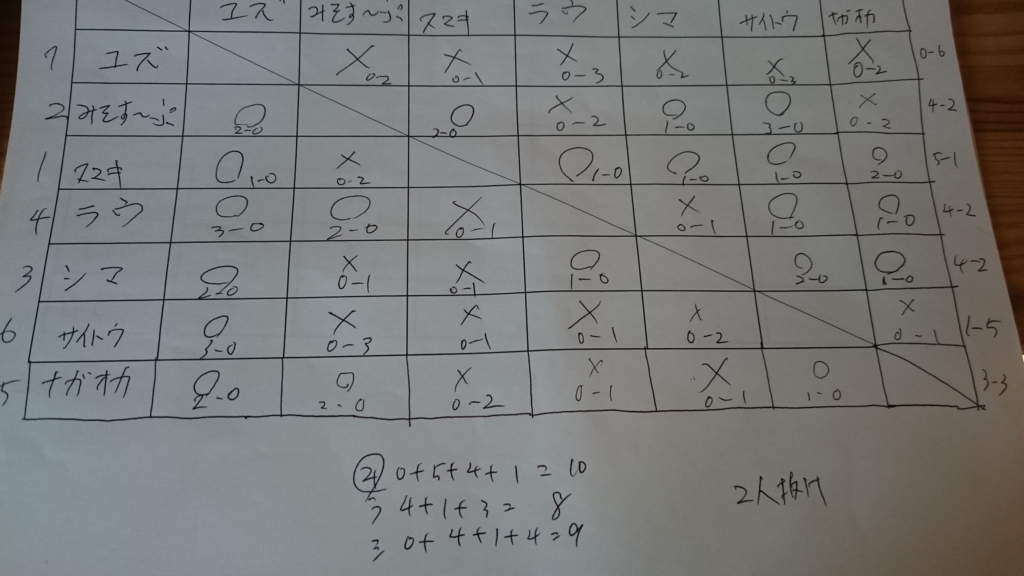 ユズ みそす〜ぷ スズキ ラウ シマ サイトウ ナガオカ
7 ユズ × 0-2 × 0-1 × 0-3 × 0-2 × 0-3 × 0-2 0-6
2 みそす〜ぷ ○ 2-0 ○ 2-0 × 0-2 ○ 1-0 ○ 3-0 × 0-2 4-2
1 スズキ ○ 1-0 × 0-2 ○ 1-0 ○ 1-0 ○ 1-0 ○ 2-0 5-1
4 ラウ ○ 3-0 ○ 2-0 × 0-1 × 0-1 ○ 1-0 ○ 1-0 4-2
3 シマ ○ 2-0 × 0-1 × 0-1 ○ 1-0 ○ 2-0 ○ 1-0 4-2
6 サイトウ ○ 3-0 × 0-3 × 0-1 × 0-1 × 0-2 × 0-1 1-5
5 ナガオカ ○ 2-0 ○ 2-0 × 0-2 × 0-1 × 0-1 ○ 1-0 3-3
0+5+4+1=10
ラ 4+1+3= 8
2人抜け
シ 0+4+1+4=9